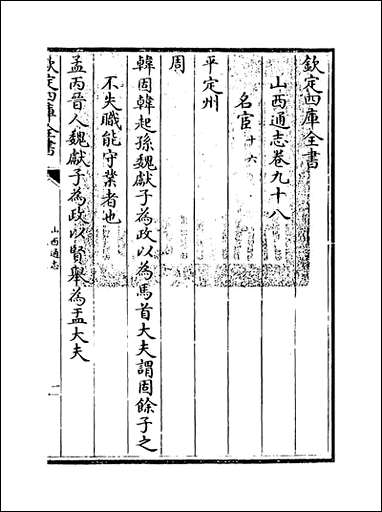 欽定四庫全書
山西通志卷九十八
名宦十六
平定州
周
韓固韓起孫魏獻子為政以為馬首大夫謂固餘子之
不失職能守業者也
孟丙晉人魏獻子為政以賢舉為盂大夫
欽定四庫全書
山西通志